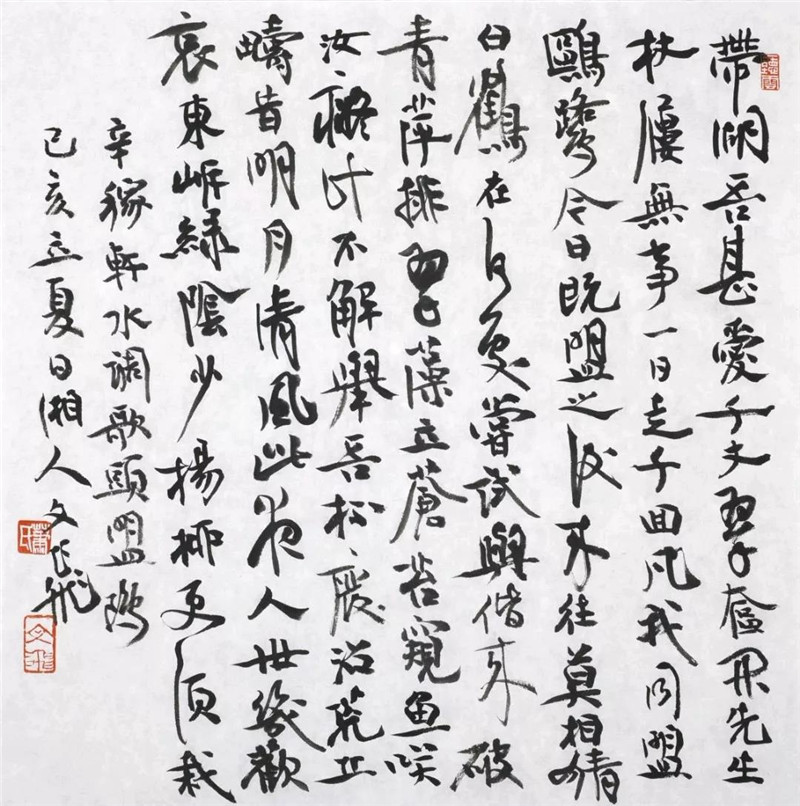 帶湖吾甚愛千丈翠奩開先生
杖屨無事一日走千回凡我同盟
鷗鷺今日既盟之後來往莫相猜
白鶴在何處嘗試與偕來破
青萍排翠藻立蒼苔窺魚笑
汝癡計不解舉吾杯廢沼荒丘
疇昔明月清風此夜人世幾歡
哀東岸綠陰少楊柳更須栽
辛稼軒水調歌頭盟鷗
己亥立夏日湘人文飛
蕭氏
文飛